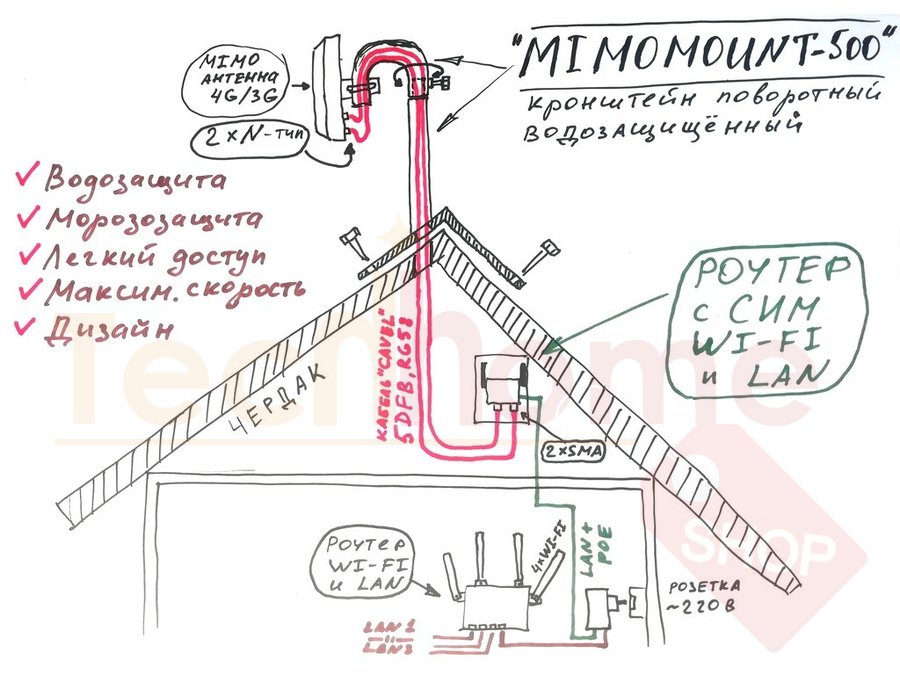 "MIMOMOUNT-500"
кронштейн поворотный
водозащищённый
MIMO
АНТЕННА
4G/3G
2xN-ТИП
Водозащита
Морозозащита
Легкий доступ
Максим. скорость
Дизайн
РОУТЕР
с СИМ
WI-FI
и LAN
КАБЕЛЬ "CAVEL"
5DFB, RG58
ЧЕРДАК
2xSMA
LAN+
POE
РОУТЕР
WI-FI
и LAN
4xWI-FI
РОЗЕТКА
~220В
LAN1
"
LAN3
Tech
home
SHOP